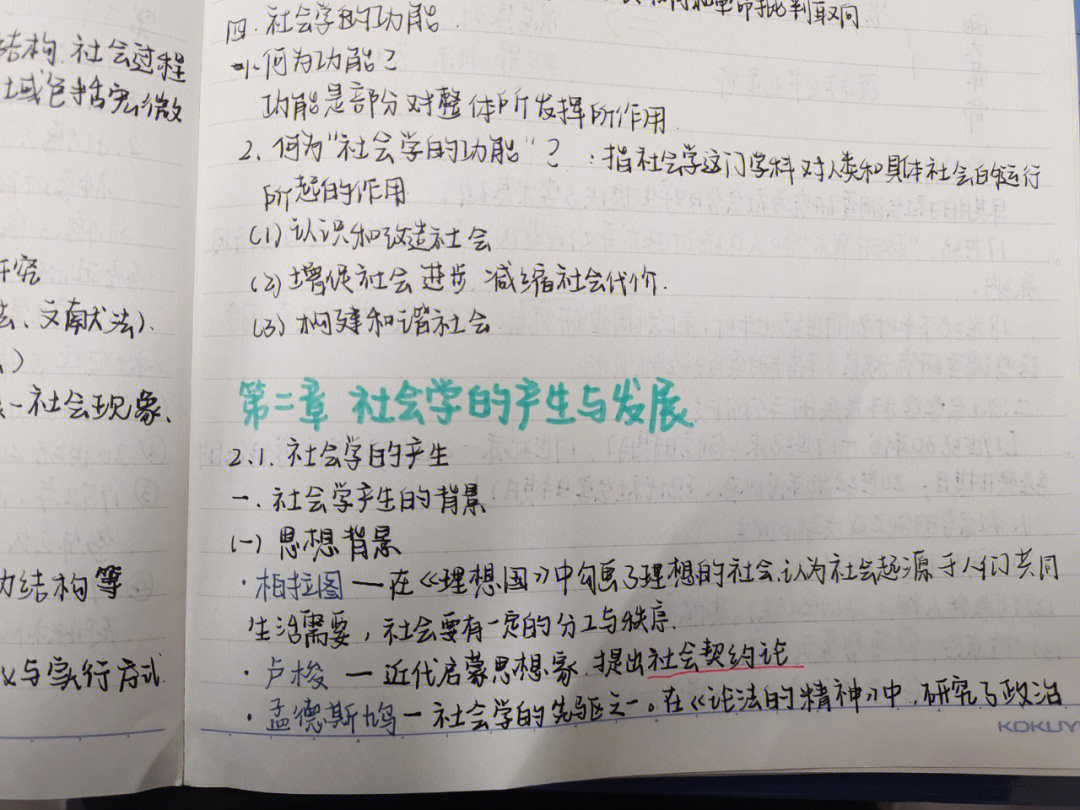 结构 社会过程
域包括宏/微
研究
法、文献法).
一社会现象、
力结构等
义与实行方式
和革命批判取向
四.社会学的功能.
1.何为功能?
功能是部分对整体所发挥所作用.
2.何为"社会学的功能"?:指社会学这门学科对人类和具体社会的运行
所起的作用
(1)认识和改造社会
(2)增促社会进步,减缩社会代价.
(3)构建和谐社会
第二章 社会学的产生与发展
2.1.社会学的产生
一.社会学产生的背景
(一)思想背景
·柏拉图—在《理想国》中勾画了理想的社会,认为社会起源于人们共同
生活需要,社会要有一定的分工与秩序.
·卢梭—近代启蒙思想家.提出社会契约论
·孟德斯鸠—社会学的先驱之一。在《论法的精神》中,研究了政治
KOKUY